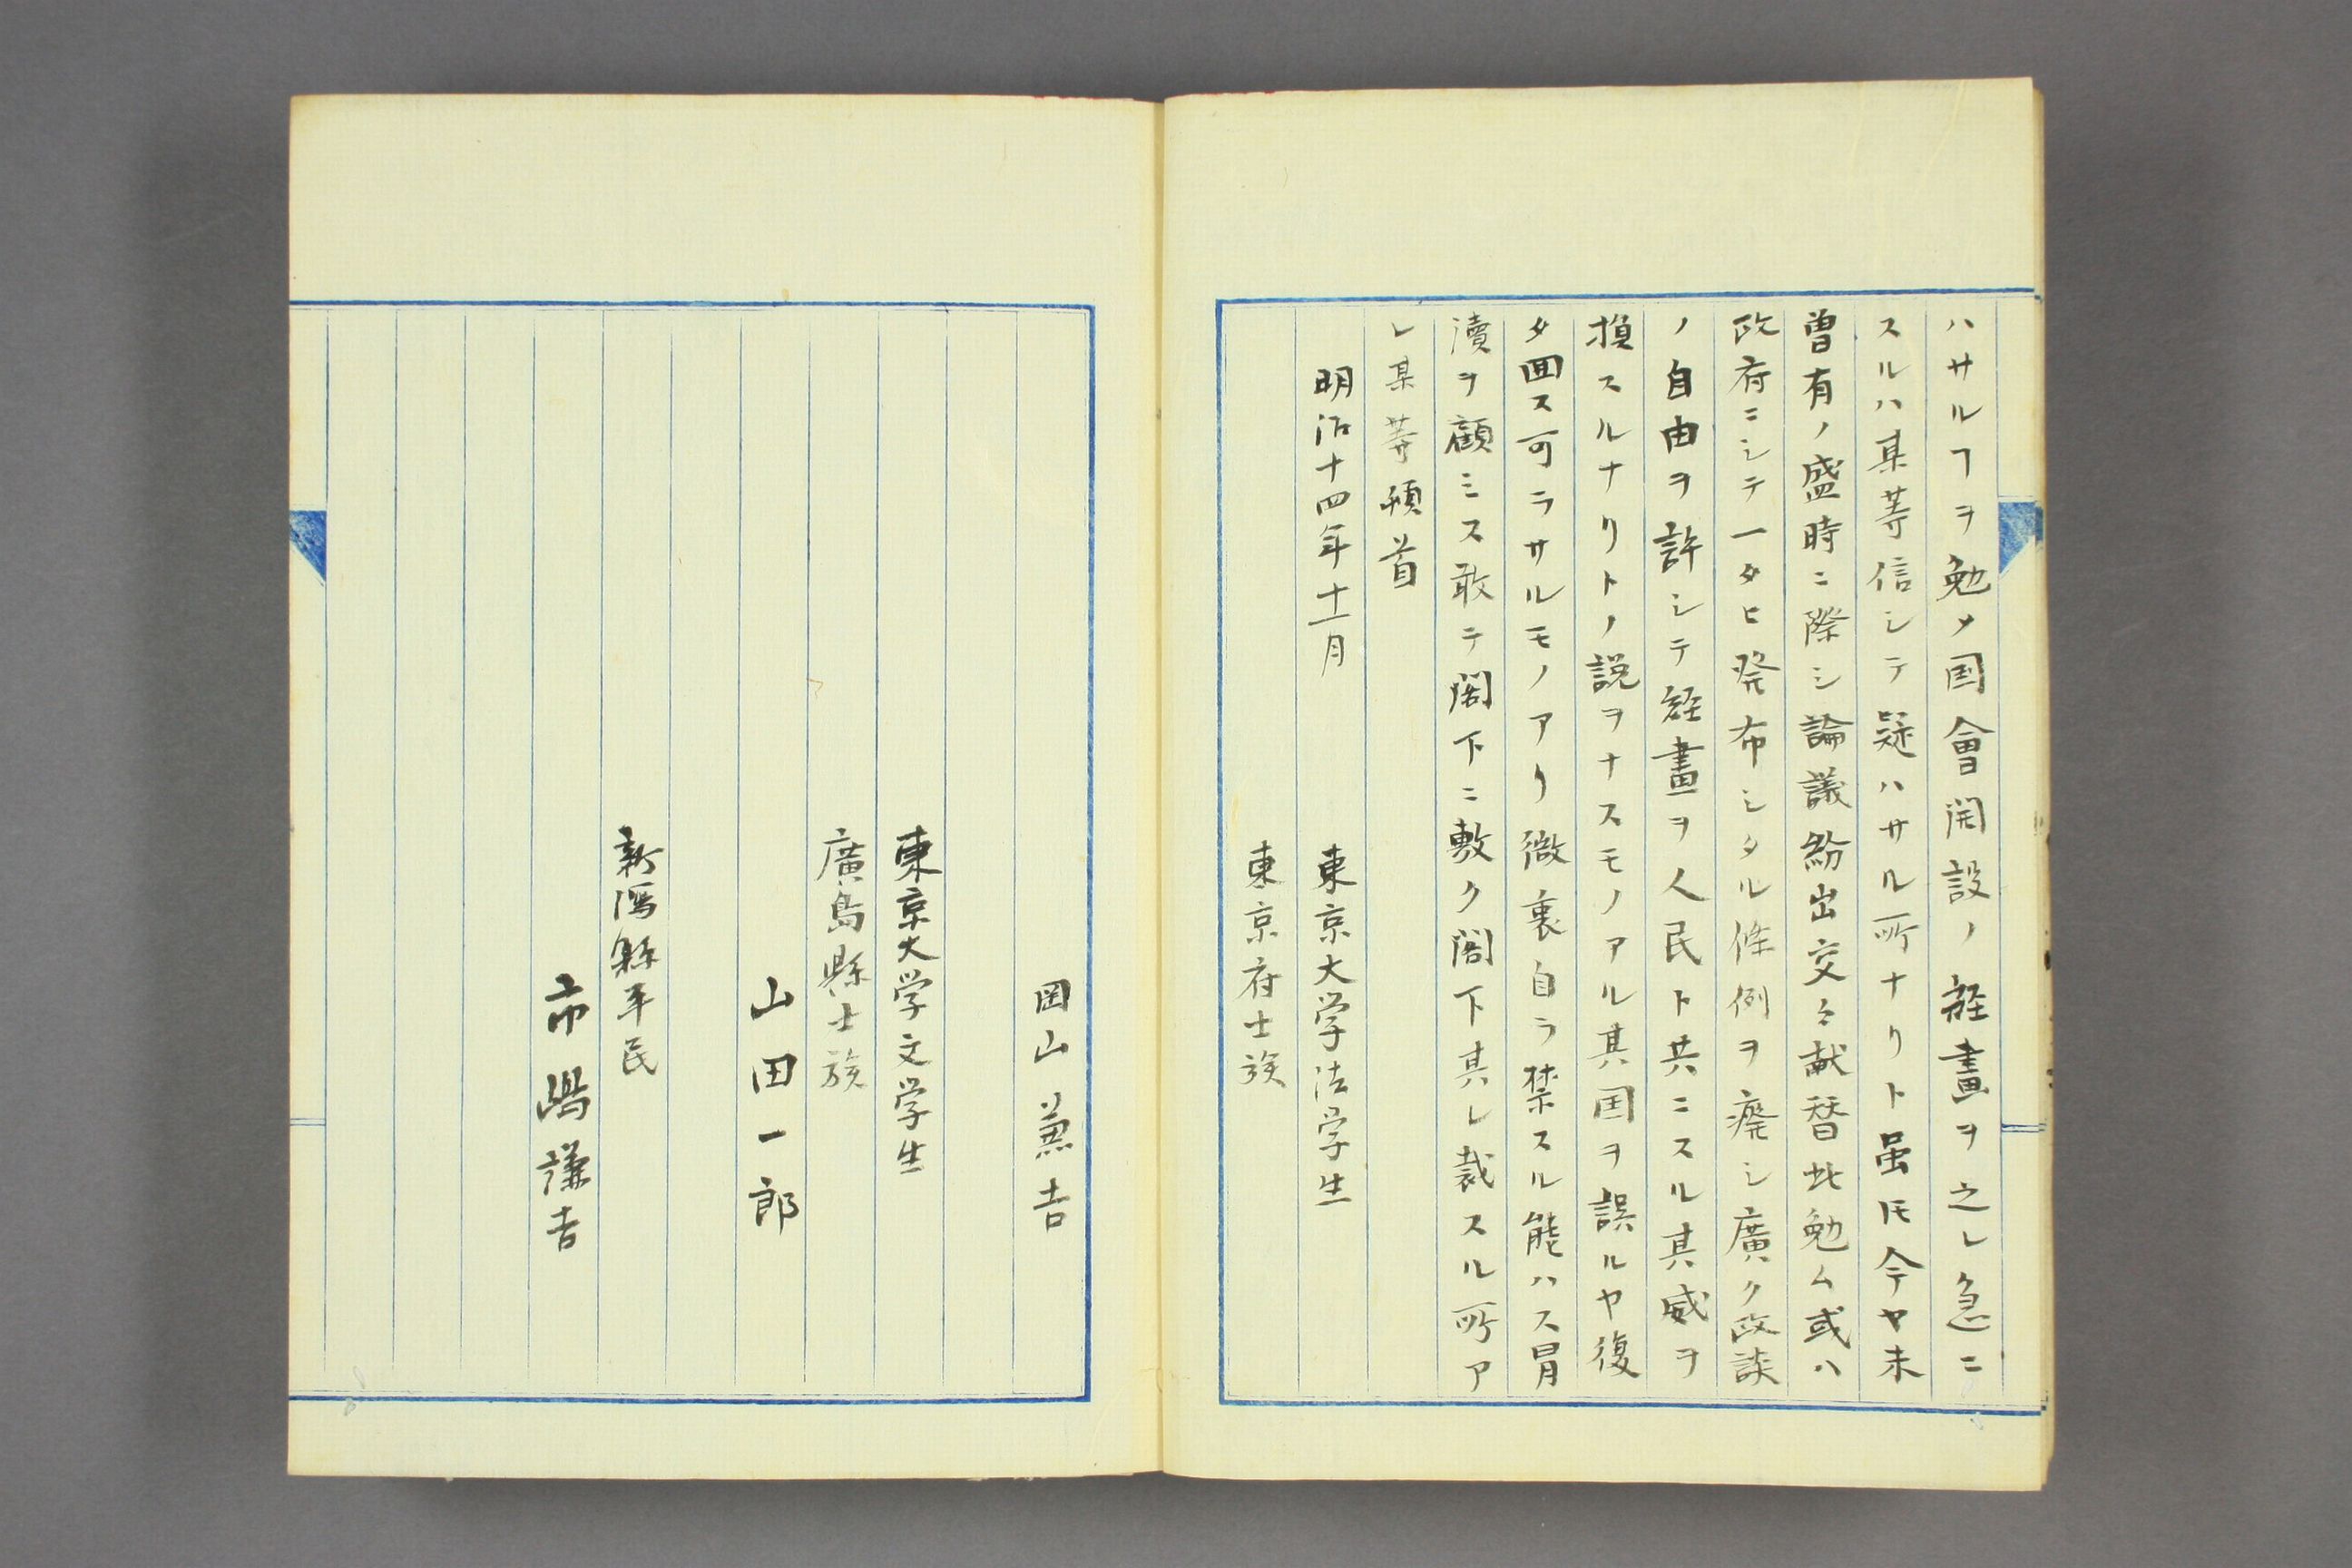 ハサルヿヲ勉メ国會開設ノ経畫ヲ之レ急ニ
スルハ某等信シテ疑ハサル所ナリト虽𪜈今ヤ未
曽有ノ盛時ニ際シ論議紛出交々献替此勉ム或ハ
政府ニシテ一タヒ発布シタル條例ヲ癈シ廣ク政談
ノ自由ヲ許シテ経畫ヲ人民ト共ニスル其威ヲ
損スルナリトノ説ヲナスモノアル其国ヲ誤ルヤ復
タ囬ス可ラサルモノアリ微衷自ラ禁スル能ハス冒
瀆ヲ顧ミス敢テ閣下ニ敷ク閣下其レ裁スル所ア
レ某等頓首
明治十四年十一月
東京大学法学生
東京府士族
岡山兼吉
東京大学文学生
廣島縣士族
山田一郎
新潟縣平民
市嶋謙吉